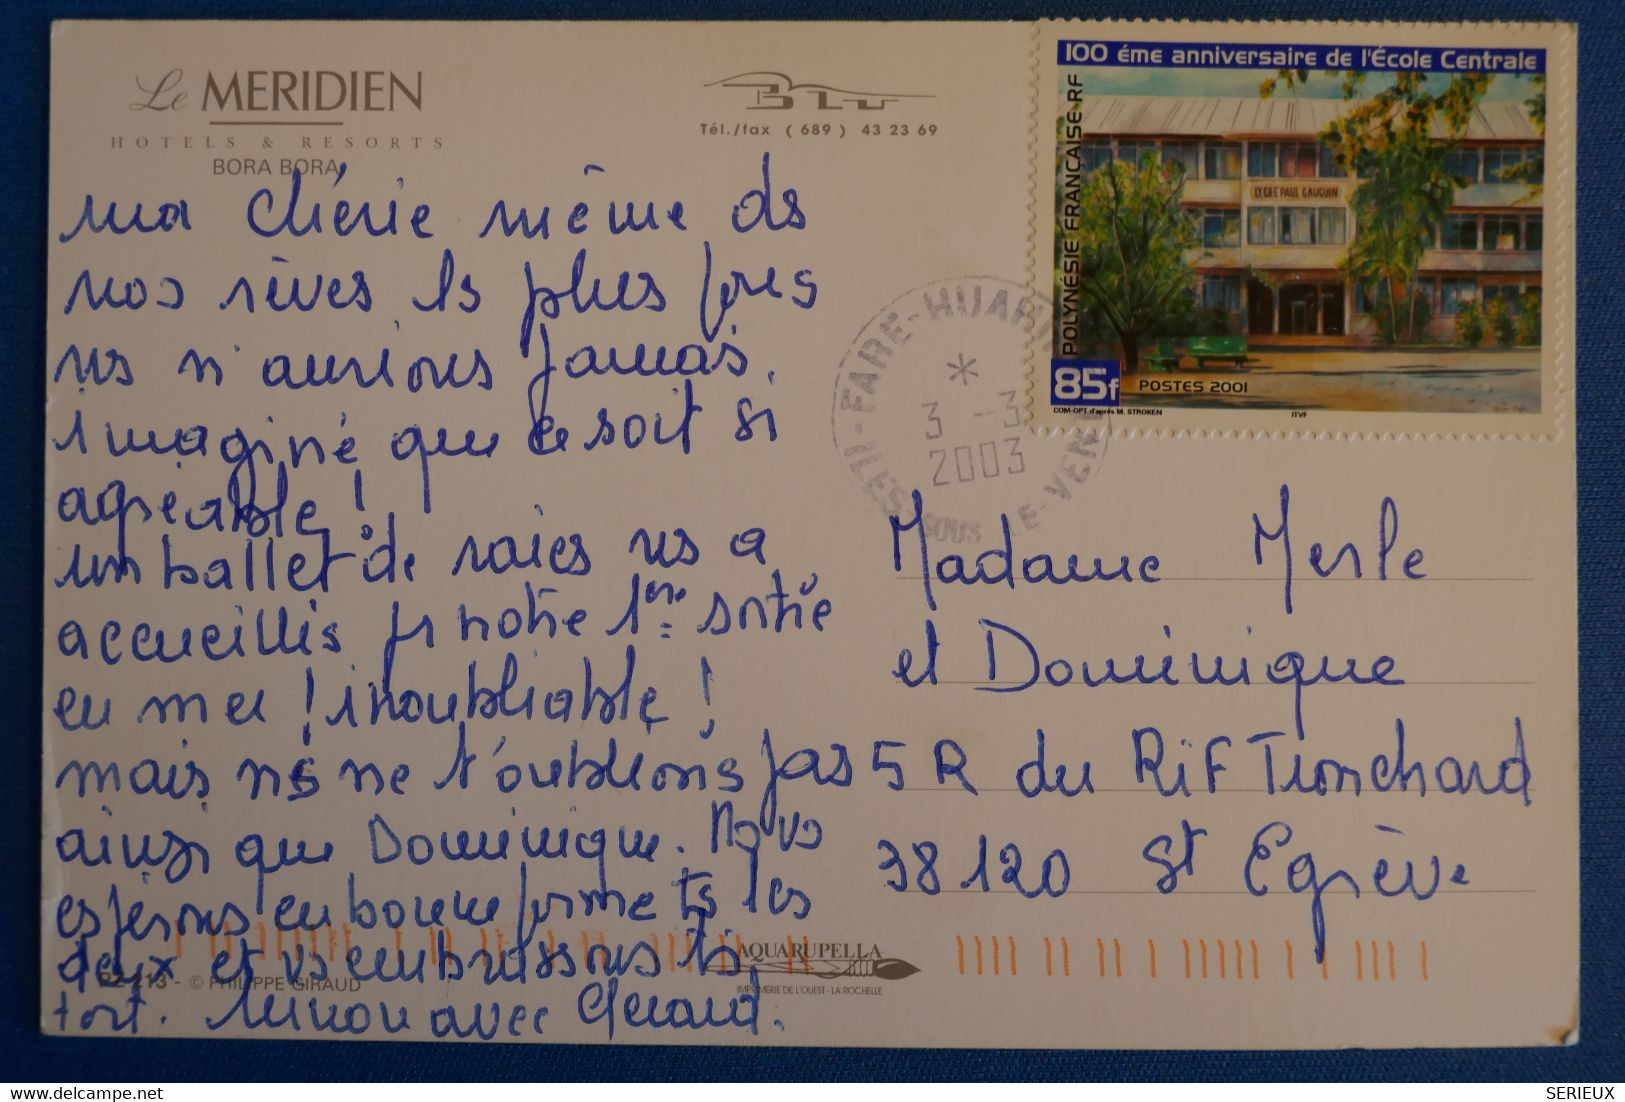 Le MERIDIEN
HOTELS & RESORTS
BORA BORA
BLU
Tél./fax ( 689 ) 43 23 69
ma chérie même ds
nos rêves ls plus fous
ns n'aurions jamais
imaginé que ce soit si
agréable !
un ballet de raies ns a
accueillis pr notre 1ère sortie
en mer ! inoubliable !
mais ns ne t'oublions pas
ainsi que Dominique. Ns vs
espérons en bonne forme ts les
deux et vs embrassons ts
fort. Ninon avec Gérard.
PZ 213 - © PHILIPPE GIRAUD
AQUARUPELLA
IMPRIMERIE DE L'OUEST - LA ROCHELLE
100 éme anniversaire de l'École Centrale
POLYNÉSIE FRANÇAISE-RF
LYCEE PAUL GAUGUIN
85f
POSTES 2001
COM-OPT d'après M. STROKEN
ITVF
FARE-HUAHI
3 -3
2003
ILES-SOUS LE-VEN
Madame Merle
et Dominique
5 R du Rif Tronchard
38120 St Egrève
SERIEUX